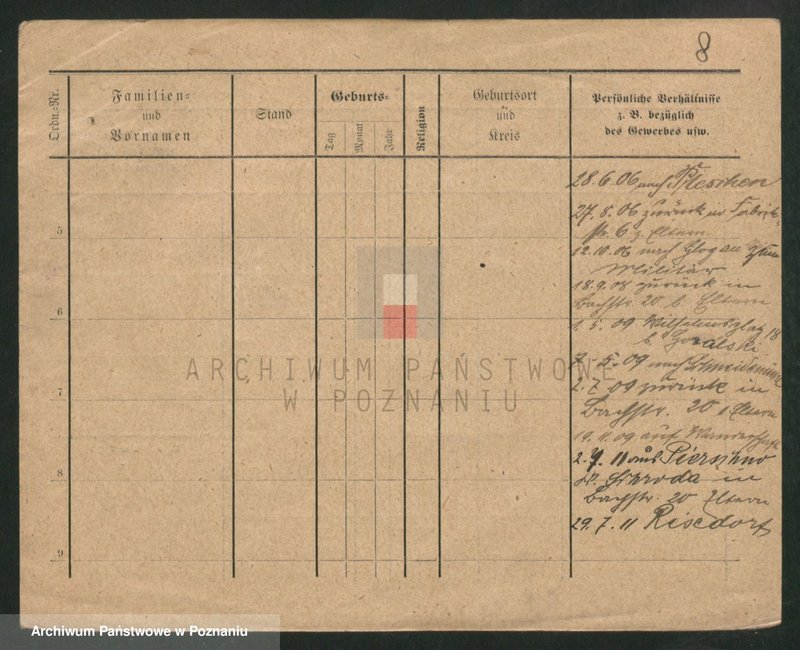 8
Ordn.-Nr.
Familien-
und
Vornamen
Stand
Geburts-
Tag
Monat
Jahr
Religion
Geburtsort
und
Kreis
Persönliche Verhältnisse
z. B. bezüglich
des Gewerbes usw.
28.6.06 nach Pleschen
27.8.06 zurück in Fabrik-
str. 6 z. Eltern.
12.10.06 nach Glogau zum
Militär
18.9.08 zurück in
Bachstr. 20 b. Eltern
1.5.09 Wilhelmsplatz 18
b. Goralski
7.5.09 nach Schneidemühl
2.7.09 zurück in
Bachstr. 20 Eltern
19.11.09 auf Wanderschaft
2. 11 aus
Schroda in
Bachstr. 20 Eltern
29.7.11
5
6
7
8
9
ARCHIWUM PAŃSTWOWE
W POZNANIU
Archiwum Państwowe w Poznaniu